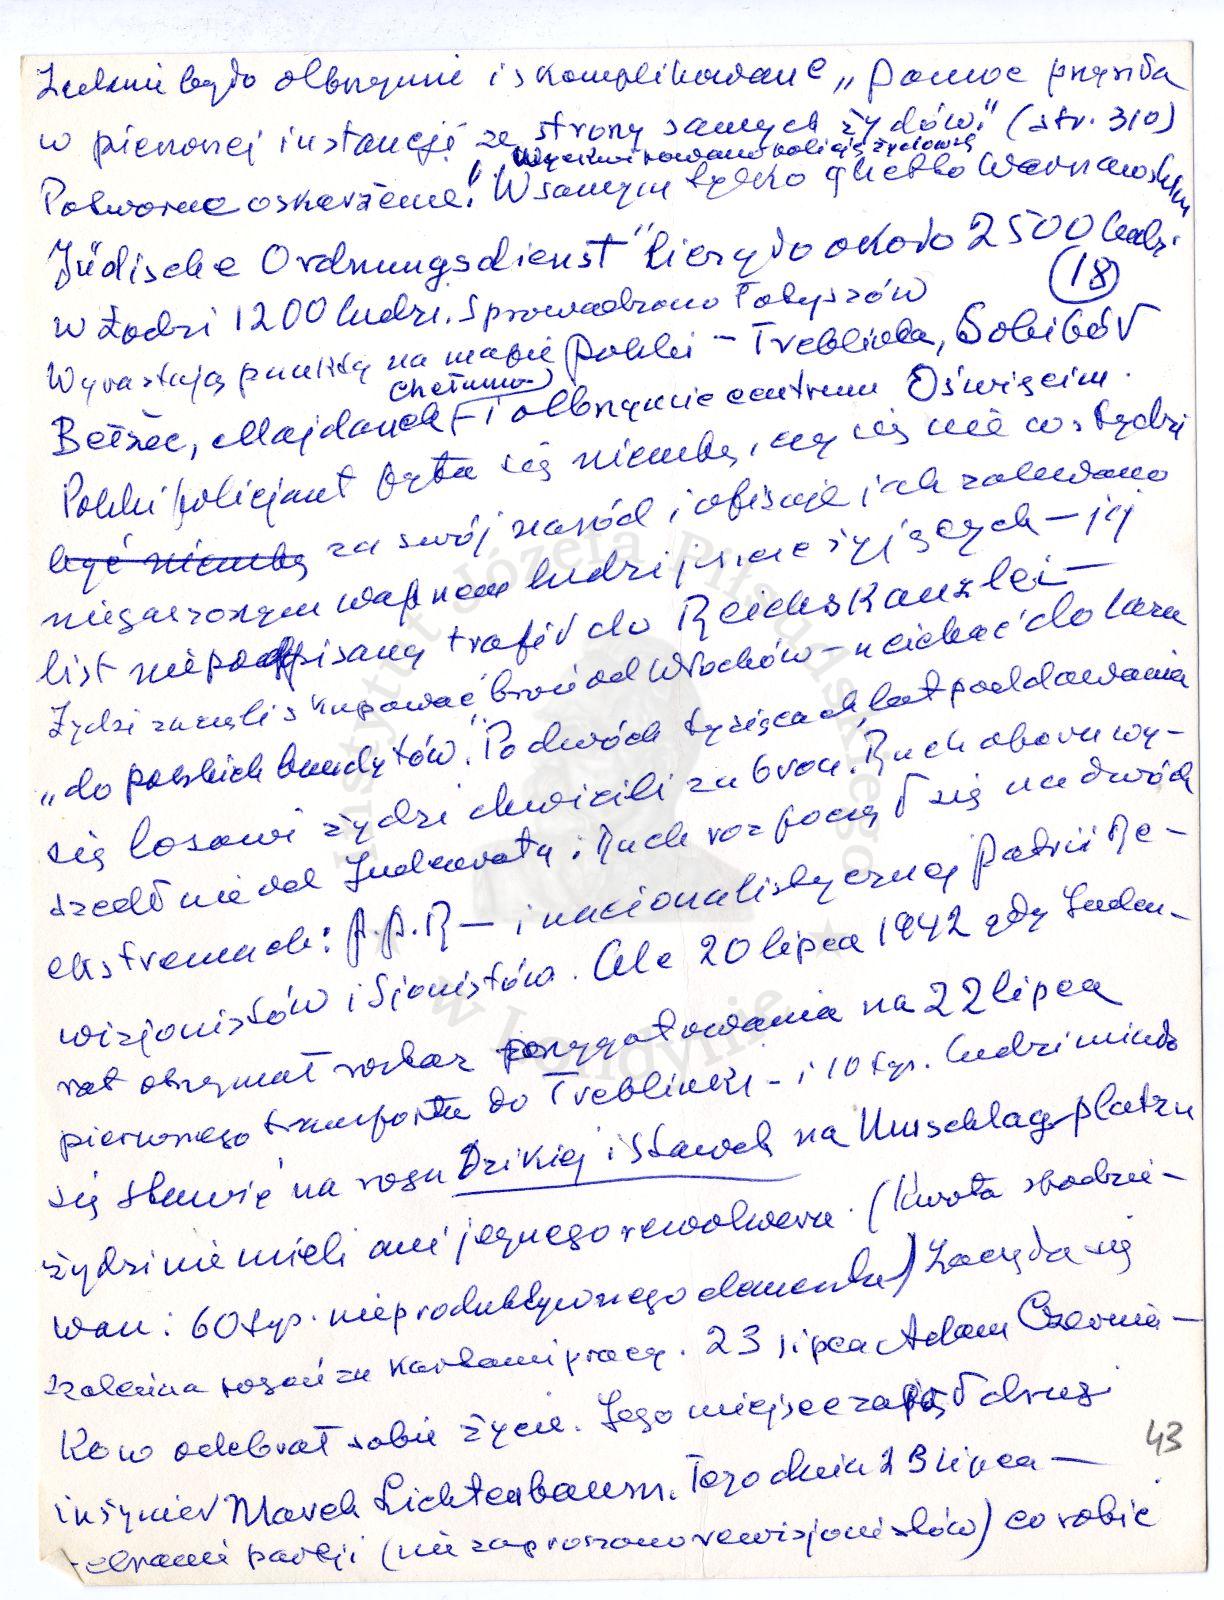 Zadanie było olbrzymie i skomplikowane „Pomoc przyszła
w pierwszej instancji ze strony samych żydów." (str. 310)
Wyekwipowano policję żydowską
Potworne oskarżenie! W samym tylko ghetto Warszawskim
"Jüdische Ordnungsdienst" liczył do około 2500 ludzi
(18)
w Łodzi 1200 ludzi. Sprowadzono Łotyszów
Wyrastają punkty na mapie Polski – Treblinka, Sobibór
Chełmno
Bełżec, Majdanek – i olbrzymie centrum Oświęcim.
Polski policjant pyta się niemkę, czy się nie wstydzi
być niemką za swój naród i opisuje jak zalewano
niegaszonym wapnem ludzi jeszcze żyjących – jej
list niepodpisany trafił do Reichskanzlei –
Żydzi zaczęli skupować broń od Włochów – uciekać do lasu
„do polskich bandytów". Po dwóch tysiącach lat poddawania
się losowi żydzi chwycili za broń. Ruch oporu wy-
szedł nie od Judenratu; Ruch rozpoczął się na dwóch
ekstremach: P.P.R – i nacjonalistycznej Partii Re-
wizjonistów i Sjonistów. Ale 20 lipca 1942 gdy Juden-
rat otrzymał rozkaz przygotowania na 22 lipca
pierwszego transportu do Treblinki – i 10 tys. ludzi miało
się stawić na rogu Dzikiej i Stawek na Umschlagplatzu
żydzi nie mieli ani jednego rewolweru. (Kwota spodzie-
wan: 60 tys. nieproduktywnego elementu) Zaczęła się
szaleńcza pogoń za kartami pracy. 23 lipca Adam Czernia-
kow odebrał sobie życie. Jego miejsce zajął drugi
43
inżynier Marek Lichtenbaum. Tego dnia 23 lipca –
zebranie partji (nie zaproszono rewizjonistów) co robić
Instytut Józefa Piłsudskiego
w Londynie